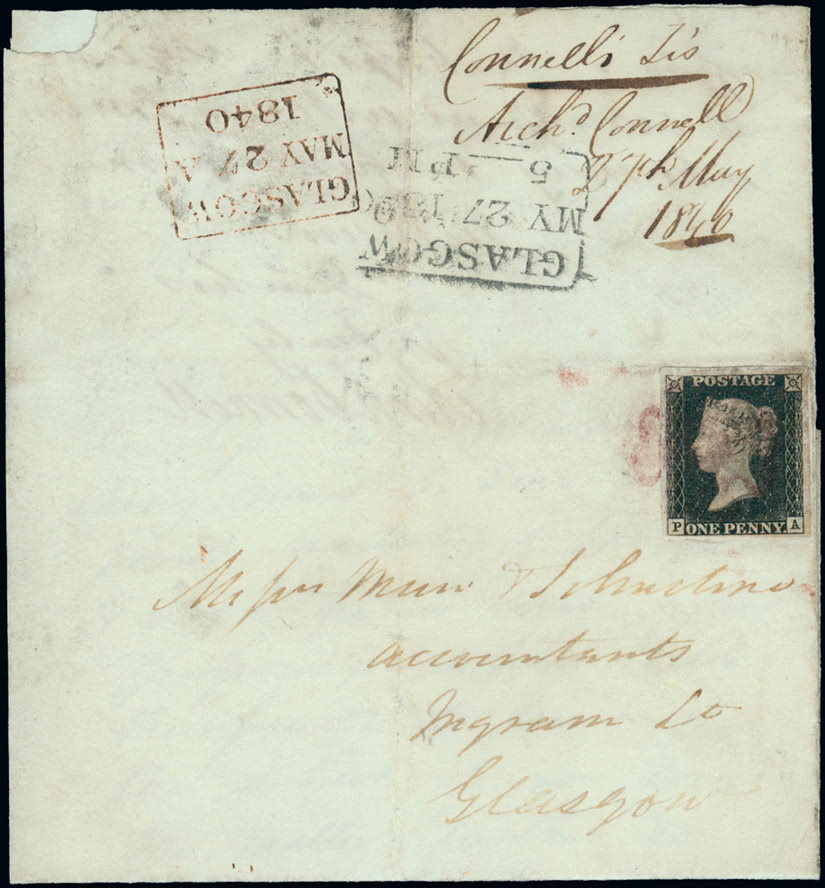 Connell's Trs
Archd Connell
27th May
1840
GLASGOW
MAY 27 A
1840
GLASGOW
MY 27 1840
5 PM
POSTAGE
P ONE PENNY A
Messrs Muir & Johnstone
accountants
Ingram St
Glasgow